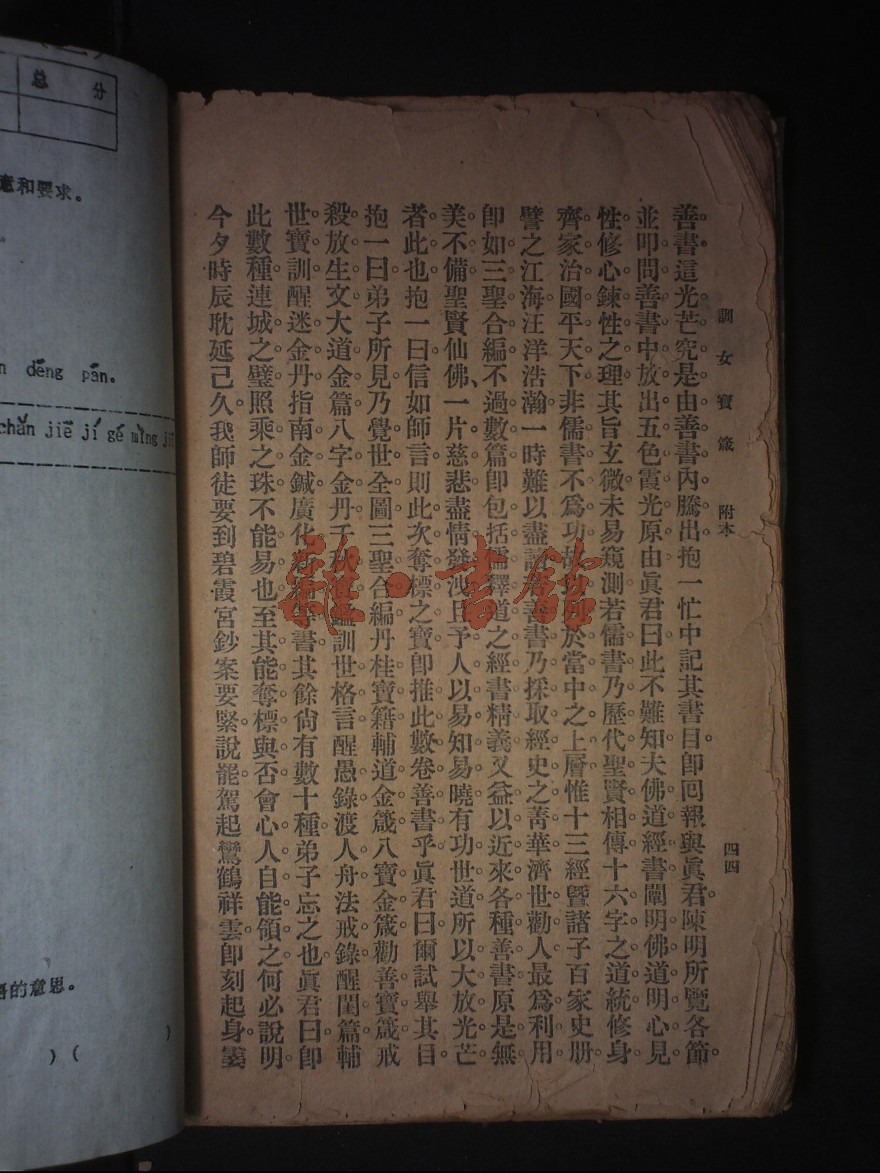 訓女寶箴 附本 四四
善書。這光芒究是由善書內騰出。抱一忙中記其書目。即回報與眞君。陳明所覽各節。
並叩問善書中放出五色霞光原由。眞君曰。此不難知。夫佛道經書。闡明佛道。明心見
性。修心鍊性之理。其旨玄微。未易窺測。若儒書乃歷代聖賢相傳十六字之道統。修身
齊家治國平天下。非儒書不爲功。於當中之上層。惟十三經暨諸子百家史册。
譬之江海。汪洋浩瀚。一時難以盡 善書乃採取經史之菁華。濟世勸人。最爲利用。
卽如三聖合編。不過數篇。卽包括儒釋道之經書精義。又益以近來各種善書。原是無
美不備。聖賢仙佛、一片慈悲。盡情發洩。且予人以易知易曉。有功世道。所以大放光芒。
者。此也。抱一曰。信如師言。則此次奪標之寶。卽推此數卷善書乎。眞君曰。爾試舉其目。
抱一曰。弟子所見。乃覺世全圖。三聖合編。丹桂寶籍。輔道金箴。八寶金箴。勸善寶箴。戒
殺放生文。大道金篇。八字金丹。千秋 鑑。訓世格言。醒愚錄。渡人舟。法戒錄。醒閨篇。輔
世寶訓。醒迷金丹。指南金鍼。廣化新編等書。其餘尙有數十種。弟子忘之也。眞君曰。卽
此數種。連城之璧。照乘之珠。不能易也。至其能奪標與否。會心人自能領之。何必說明。
今夕時辰耽延已久。我師徒要到碧霞宮鈔案要緊。說罷。駕起鸞鶴祥雲。卽刻起身。霎
总 分
意和要求。
n děng pán.
chǎn jiē jí gé mìng
的意思。
) ( )
雜·書館